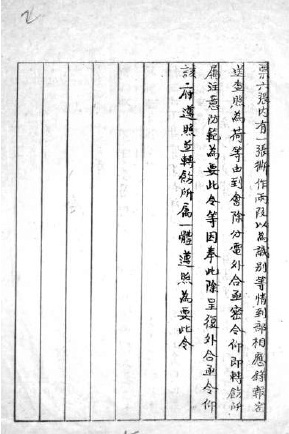 票六張内有一張撕作兩段以為識别等情到部相應録報
查照為荷等由到會除分電外合亟密令仰即轉飭所
屬注意防範為要此令等因奉此除呈復外合亟令仰
該 遵照並轉飭所屬一體遵照為要此令